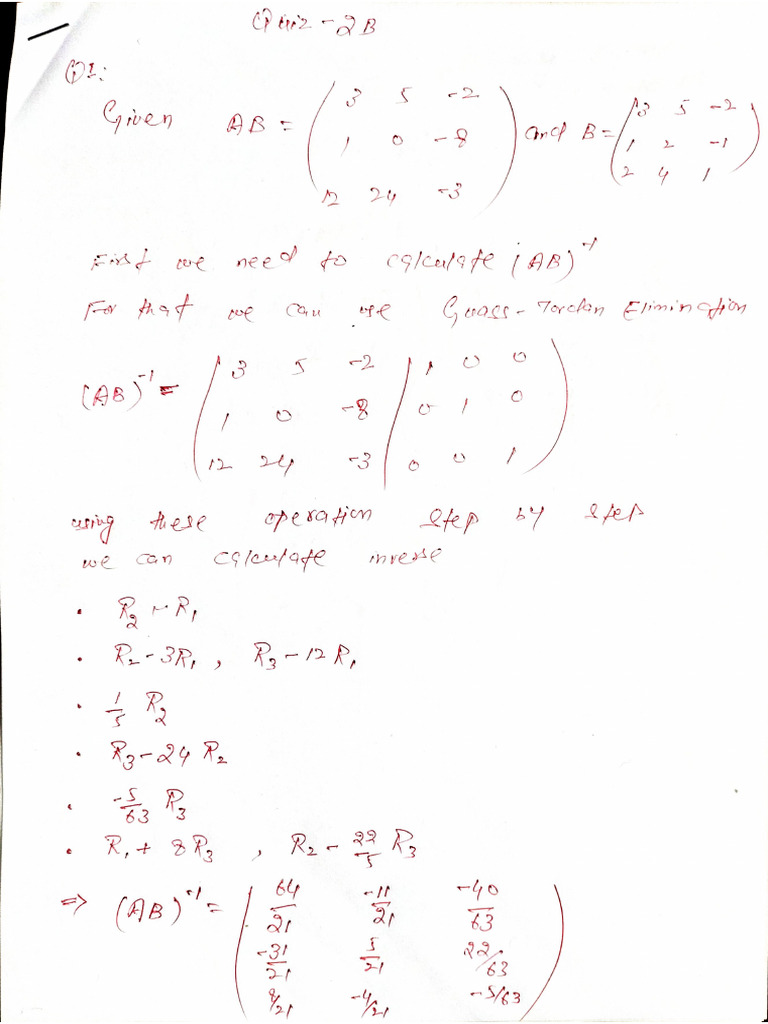 Quiz-2B
Q1:
Given AB = ( 3 5 -2 ; 1 0 -8 ; 12 24 -3 ) and B = ( 3 5 -2 ; 1 2 -1 ; 2 4 1 )
First we need to calculate (AB)^-1
For that we can use Guass-Jordan Elimination
(AB)^-1 = ( 3 5 -2 | 1 0 0 ; 1 0 -8 | 0 1 0 ; 12 24 -3 | 0 0 1 )
using these operation step by step
we can calculate inverse
• R2 ~ R1
• R2 - 3R1 , R3 - 12 R1
• 1/5 R2
• R3 - 24 R2
• -5/63 R3
• R1 + 8R3 , R2 - 22/5 R3
=> (AB)^-1 = ( 64/21 -11/21 -40/63 ; -31/21 5/21 22/63 ; 8/21 -4/21 -5/63 )